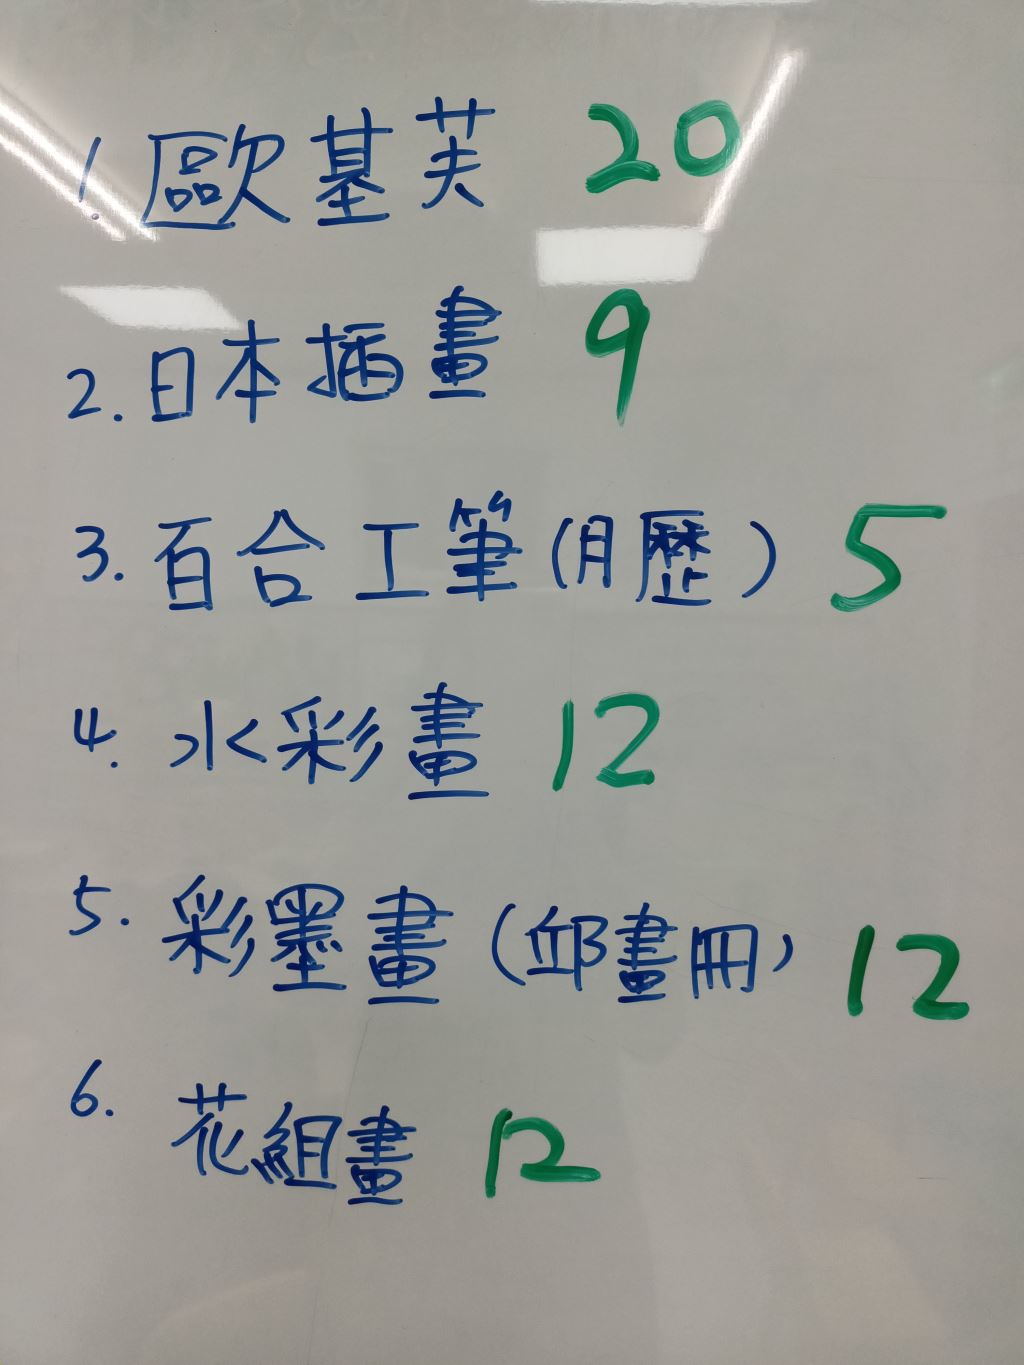 1. 歐基芙 20
2. 日本插畫 9
3. 百合工筆(月歷) 5
4. 水彩畫 12
5. 彩墨畫(邱畫冊) 12
6. 花組畫 12